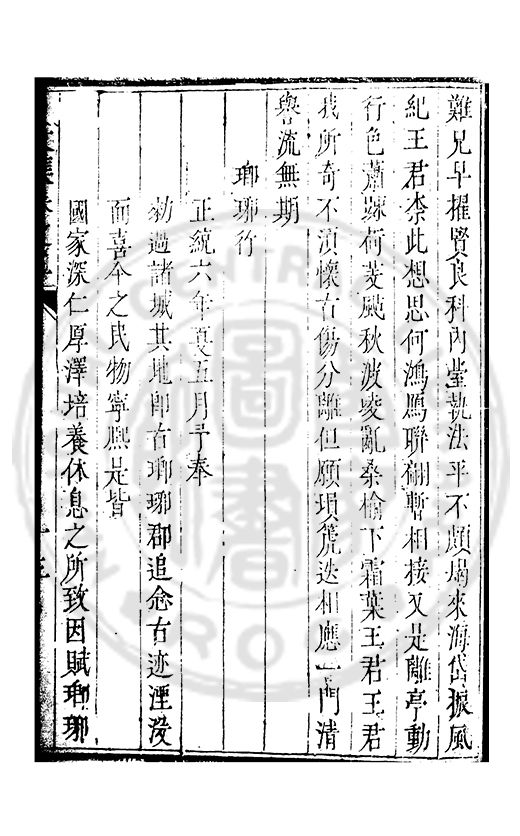 難兄早擢賢良科內臺執法平不頗朅來海岱振風
紀王君柰此想思何鴻鴈聯翩暫相接又是離亭動
行色蕭踈荷芰颭秋波崚亂桑榆下霜葉王君王君
我所奇不須懷古傷分離但願塤篪迭相應一門清
譽流無期
瑯琊行
正統六年夏五月予奉
勑過諸城其地卽古瑯琊郡追念古迹湮沒
而喜今之民物寧熈是皆
國家深仁厚澤培養休息之所致因賦瑯琊